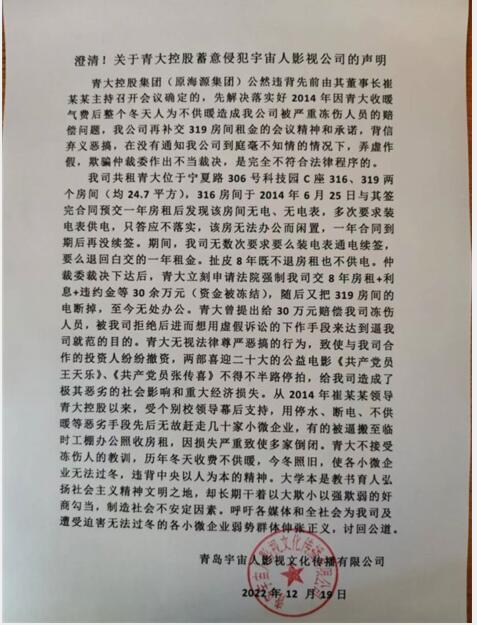 澄清！关于青大控股蓄意侵犯宇宙人影视公司的声明
青大控股集团（原海源集团）公然违背先前由其董事长崔
某某主持召开会议确定的，先解决落实好 2014 年因青大收暖
气费后整个冬天人为不供暖造成我公司被严重冻伤人员的赔
偿问题，我公司再补交 319 房间租金的会议精神和承诺，背信
弃义恶搞，在没有通知我公司到庭毫不知情的情况下，弄虚作
假，欺骗仲裁委作出不当裁决，是完全不符合法律程序的。
我司共租青大位于宁夏路 306 号科技园 C 座 316、319 两
个房间（均 24.7 平方），316 房间于 2014 年 6 月 25 日与其签
完合同预交一年房租后发现该房间无电、无电表，多次要求装
电表供电，只答应不落实，该房无法办公而闲置，一年合同到
期后再没续签。期间，我司无数次要求要么装电表通电续签，
要么退回白交的一年租金。扯皮 8 年既不退房租也不供电。仲
裁委裁决下达后，青大立刻申请法院强制我司交 8 年房租+利
息+违约金等 30 余万元（资金被冻结），随后又把 319 房间的
电断掉，至今无处办公。青大曾提出给 30 万元赔偿我司冻伤
人员，被我司拒绝后进而想用虚假诉讼的下作手段来达到逼我
司就范的目的。青大无视法律尊严恶搞的行为，致使与我司合
作的投资人纷纷撤资，两部喜迎二十大的公益电影《共产党员
王天乐》、《共产党员张传喜》不得不半路停拍，给我司造成了
极其恶劣的社会影响和重大经济损失。从 2014 年崔某某领导
青大控股以来，受个别校领导幕后支持，用停水、断电、不供
暖等恶劣手段先后无故赶走几十家小微企业，有的被逼搬至临
时工棚办公照收房租，因损失严重致使多家倒闭。青大不接受
冻伤人的教训，历年冬天收费不供暖，今冬照旧，使各小微企
业无法过冬，违背中央以人为本的精神。大学本是教书育人弘
扬社会主义精神文明之地，却长期干着以大欺小以强欺弱的奸
商勾当，制造社会不安定因素。呼吁各媒体和全社会为我司及
遭受迫害无法过冬的各小微企业弱势群体伸张正义，讨回公道。
青岛宇宙人影视文化传播有限公司
2022 年 12 月 19 日